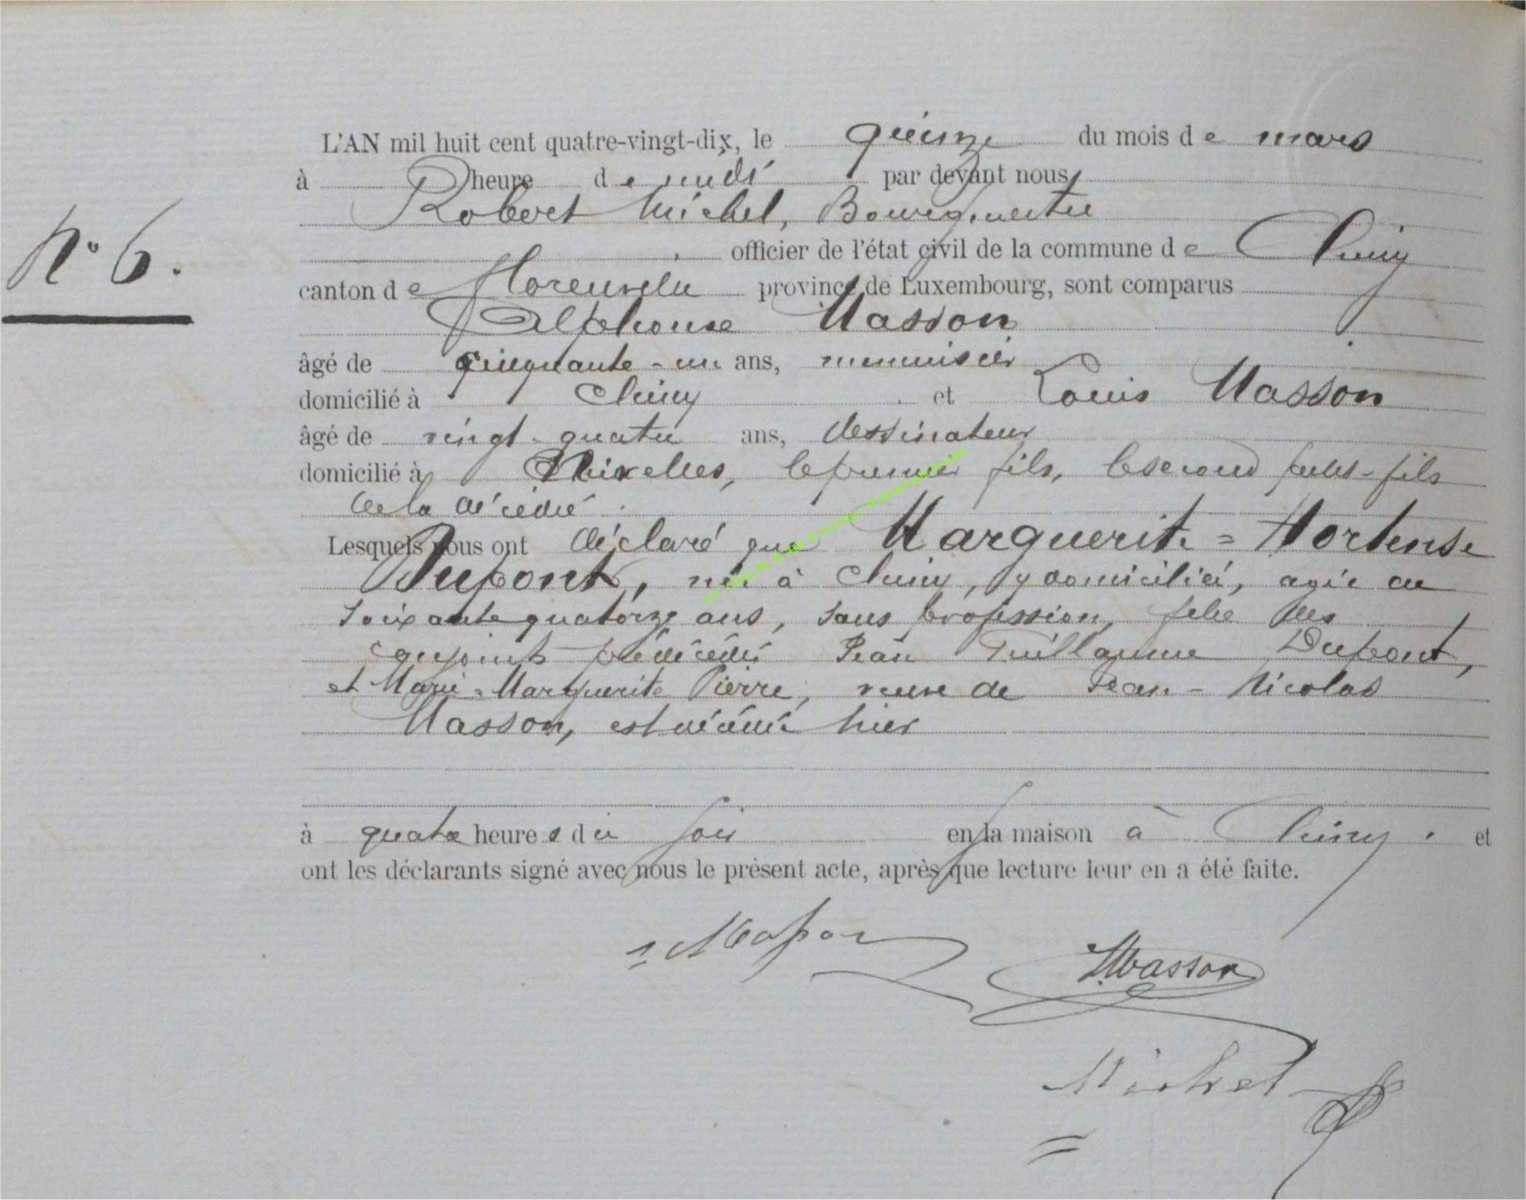 N° 6.
L'AN mil huit cent quatre-vingt-dix, le quinze du mois de mars
à heure de midi par devant nous
Robert Michel, Bourgmestre
officier de l'état civil de la commune de Chiny
canton de Florenville province de Luxembourg, sont comparus
Alphonse Masson
âgé de cinquante-un ans, menuisier
domicilié à Chiny et Louis Masson
âgé de vingt-quatre ans, dessinateur
domicilié à Nixelles, le premier fils, le second petit-fils
de la décédée.
Lesquels nous ont déclaré que Marguerite=Hortense
Dupont, née à Chiny, y domiciliée, agée de
soixante quatorze ans, sans profession, fille des
conjoints prédécédés Jean Guillaume Dupont,
et Marie-Marguerite Pierre, veuve de Jean-Nicolas
Masson, est décédée hier
à quatre heures du soir en la maison à Chiny. et
ont les déclarants signé avec nous le présent acte, après que lecture leur en a été faite.
Masson
Masson
Michel